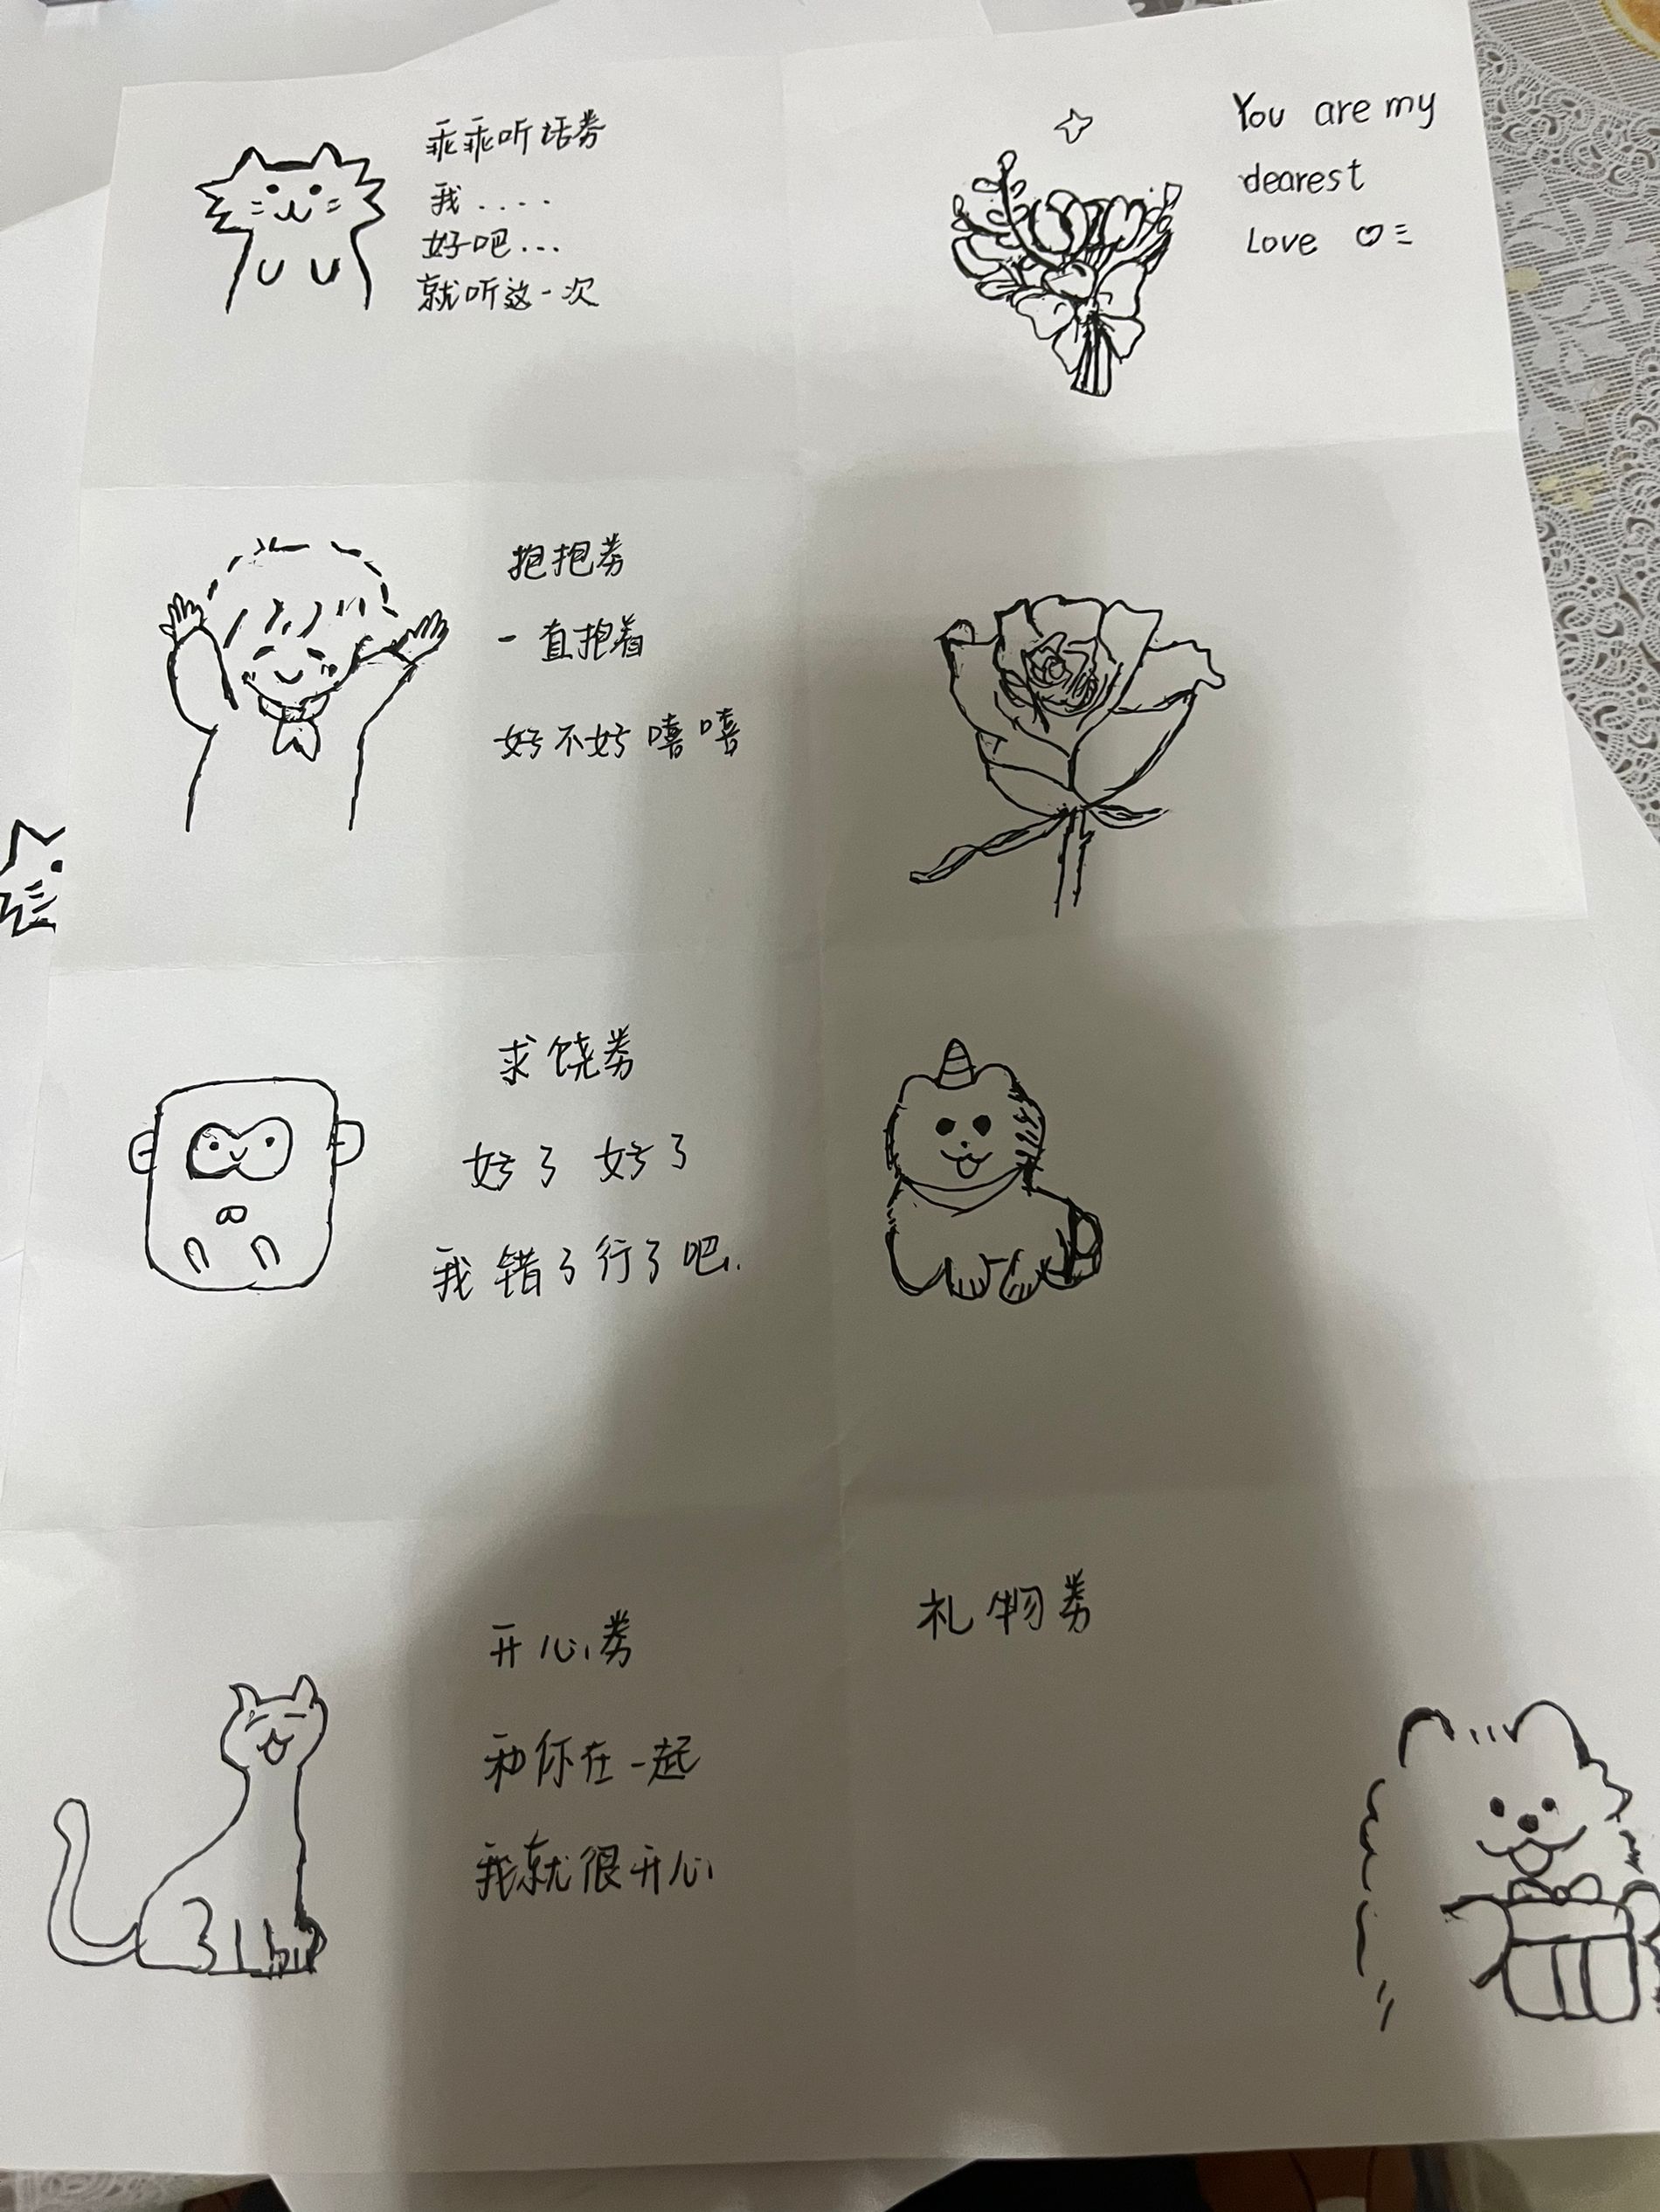 乖乖听话券
我....
好吧...
就听这一次
You are my
dearest
Love
抱抱券
一直抱着
好不好嘻嘻
求饶券
好了 好了
我错了行了吧..
开心券
和你在一起
我就很开心
礼物券